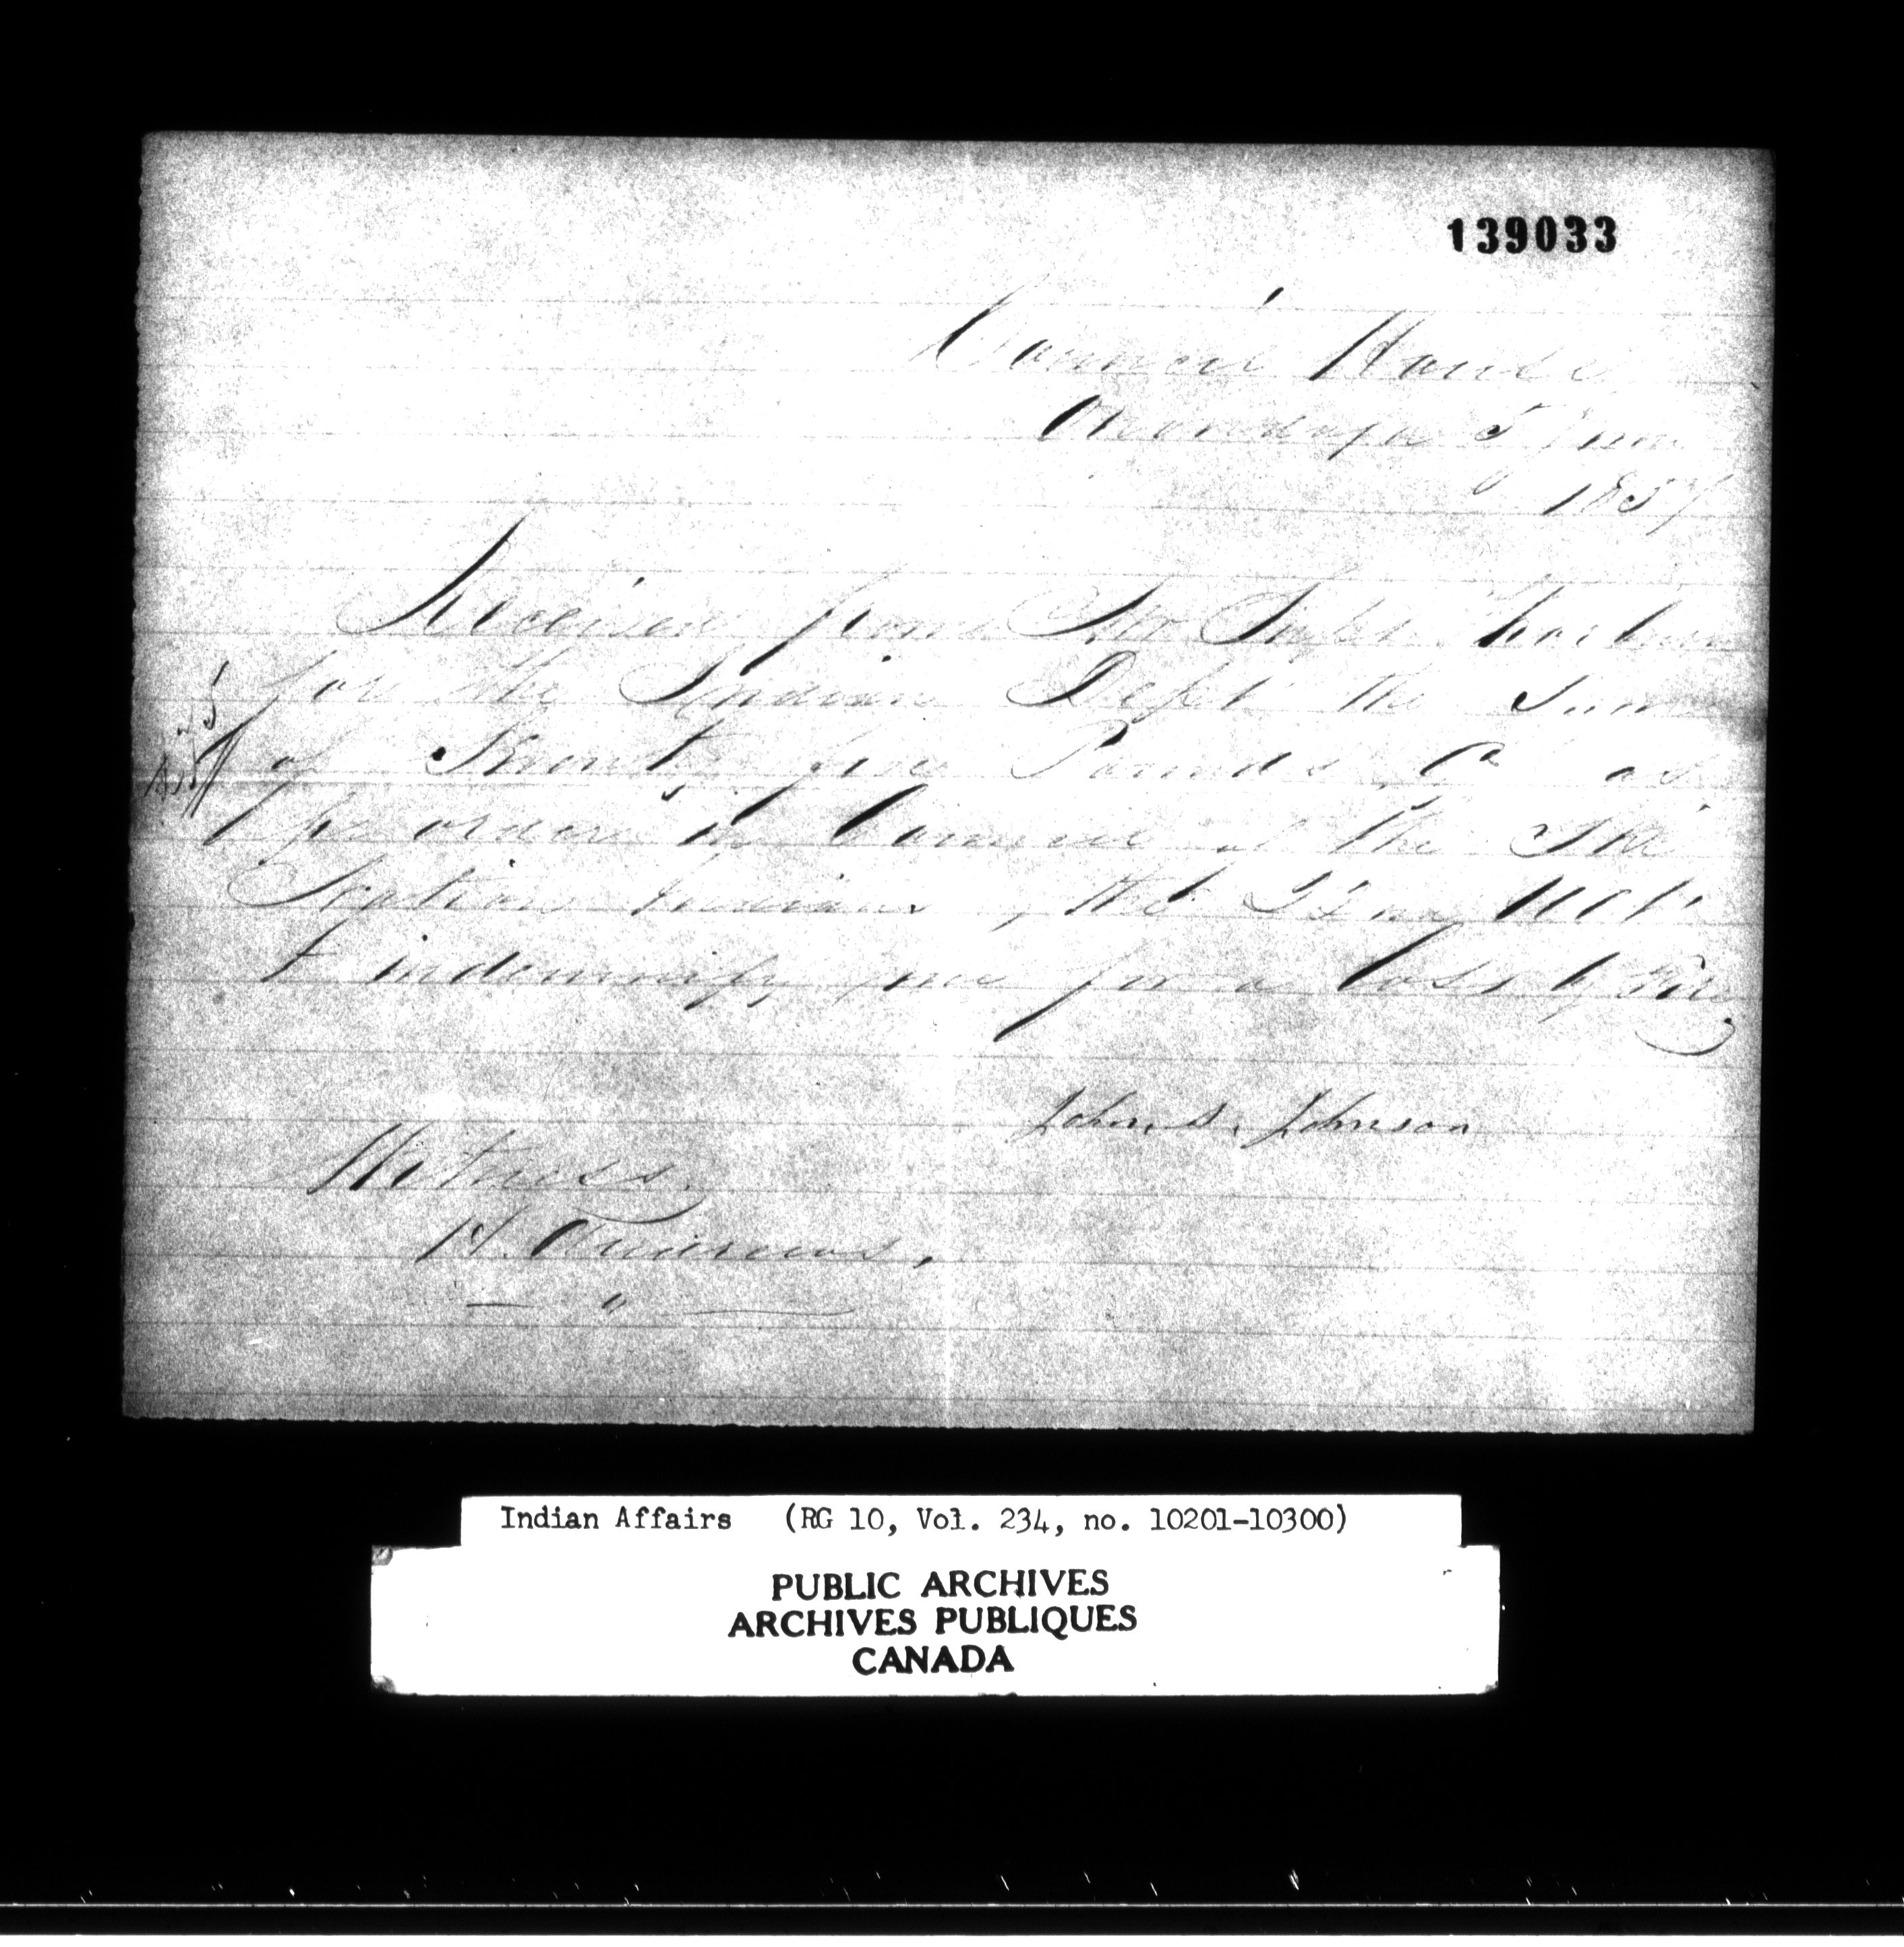 139033
Council House
Onondaga 5 June
1857
Received from Mr Jasper
for the Indian Dept the Sum
of Twenty five Pounds Cy as
per order of Council of the Six
Nations Indians of the
to indemnify me for a loss by Fire
John S. Johnson
Witness
H. Andrews,
Indian Affairs (RG 10, Vol. 234, no. 10201-10300)
PUBLIC ARCHIVES
ARCHIVES PUBLIQUES
CANADA